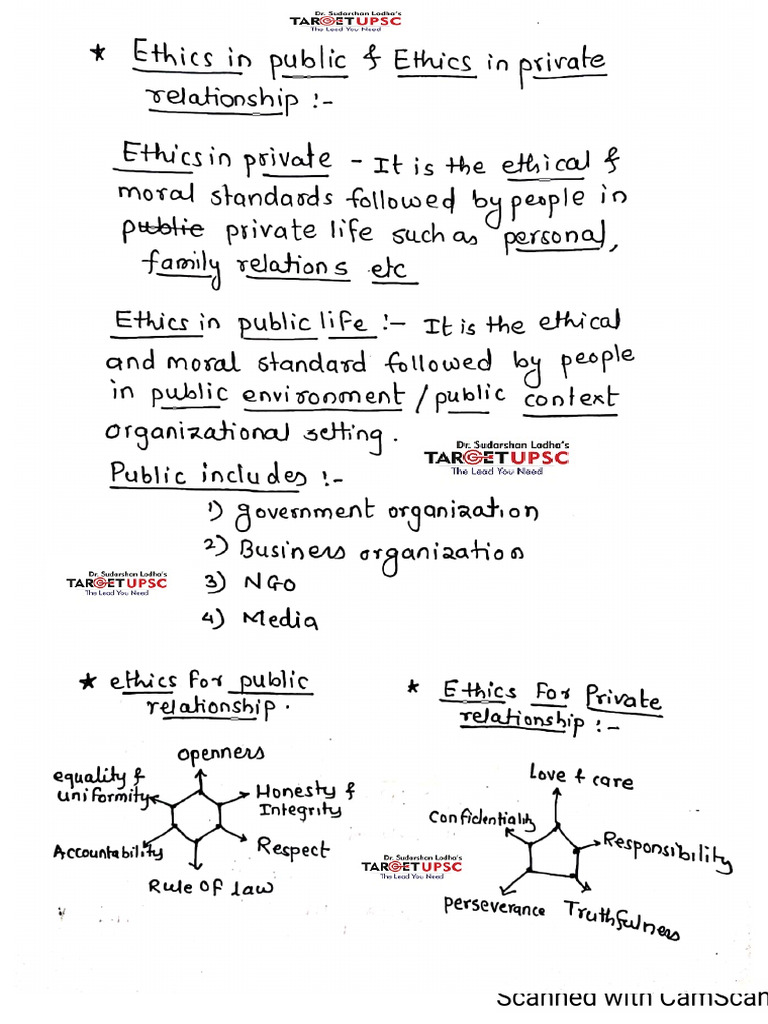 Dr. Sudarshan Lodha's
TARGETUPSC
The Lead You Need
* Ethics in public & Ethics in private
relationship :-
Ethics in private - It is the ethical &
moral standards followed by people in
public private life such as personal,
family relations etc
Ethics in public life :- It is the ethical
and moral standard followed by people
in public environment / public context
organizational setting.
Dr. Sudarshan Lodha's
TARGETUPSC
The Lead You Need
Public includes :-
1) government organization
2) Business organization
Dr. Sudarshan Lodha's
TARGETUPSC
The Lead You Need
3) NGO
4) Media
* ethics for public
relationship.
openners
equality &
uniformity
Honesty &
Integrity
Accountability
Respect
Rule of law
* Ethics For Private
relationship :-
Love & care
Confidentiality
Responsibility
Dr. Sudarshan Lodha's
TARGETUPSC
The Lead You Need
perseverance
Truthfulness
Scanned with CamScan